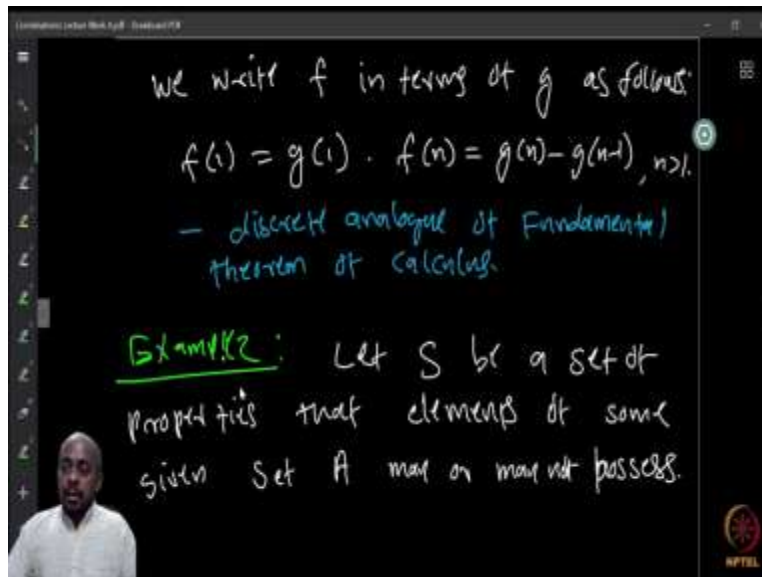 we write f in terms of g as follows:
f(1) = g(1). f(n) = g(n) - g(n-1), n>1.
- discrete analogue of Fundamental
theorem of calculus.
Example 2: Let S be a set of
properties that elements of some
given set A may or may not possess.
NPTEL